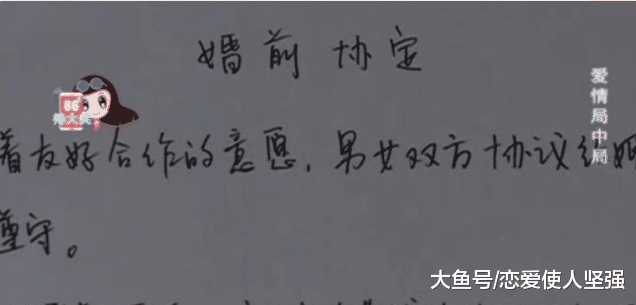 婚前协定
爱情局中局
着友好合作的意愿，男女双方协议结婚
遵守。
大鱼号/恋爱使人坚强